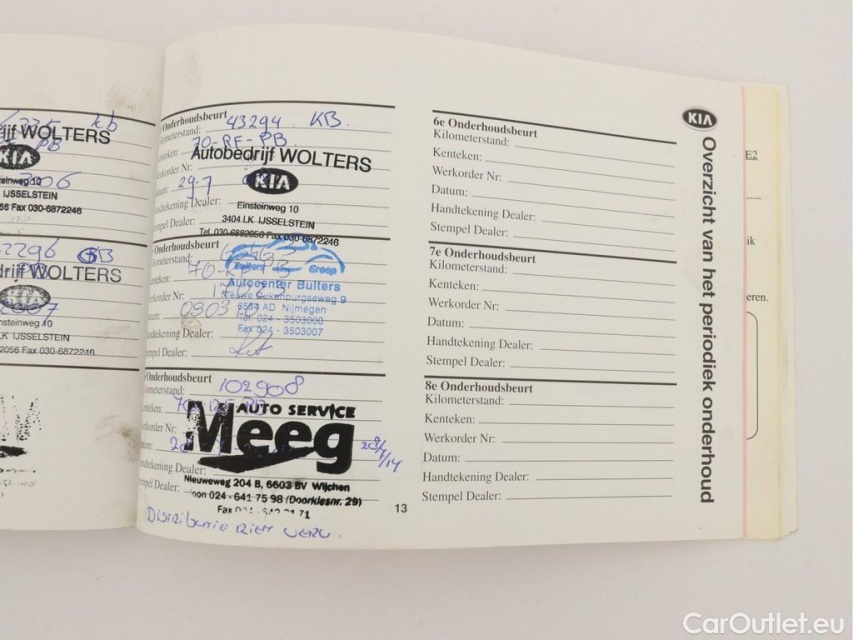 ijf WOLTERS
KIA
IJSSELSTEIN
56 Fax 030-6872246
drijf WOLTERS
nsteinweg 10
LK IJSSELSTEIN
2056 Fax 030-6872246
Onderhoudsbeurt
Kilometerstand: 43294 KB.
Kenteken: 70-RF-PB
Autobedrijf WOLTERS
Werkorder Nr:
KIA
Datum: 29.7
Handtekening Dealer:
Einsteinweg 10
Stempel Dealer: 3404 LK IJSSELSTEIN
Tel. 030-6882056 Fax 030-6872246
Onderhoudsbeurt
Kilometerstand:
Kenteken:
Bulters Groep
Autocenter Bulters
Werkorder Nr:
Nieuwe Dukenburgseweg 9
6534 AD Nijmegen
Datum:
Tel: 024 - 3503000
Fax 024 - 3503007
Handtekening Dealer:
Stempel Dealer:
Onderhoudsbeurt
Kilometerstand: 102908
Kenteken:
AUTO SERVICE
Meeg
Werkorder Nr:
Datum:
Handtekening Dealer:
Nieuweweg 204 B, 6603 BV Wijchen
Stempel Dealer:
oon 024 - 641 75 98 (Doorkiesnr. 29)
Distributie riem verv.
13
6e Onderhoudsbeurt
Kilometerstand:
Kenteken:
Werkorder Nr:
Datum:
Handtekening Dealer:
Stempel Dealer:
7e Onderhoudsbeurt
Kilometerstand:
Kenteken:
Werkorder Nr:
Datum:
Handtekening Dealer:
Stempel Dealer:
8e Onderhoudsbeurt
Kilometerstand:
Kenteken:
Werkorder Nr:
Datum:
Handtekening Dealer:
Stempel Dealer:
KIA
Overzicht van het periodiek onderhoud
E2
ik
eren.
CarOutlet.eu